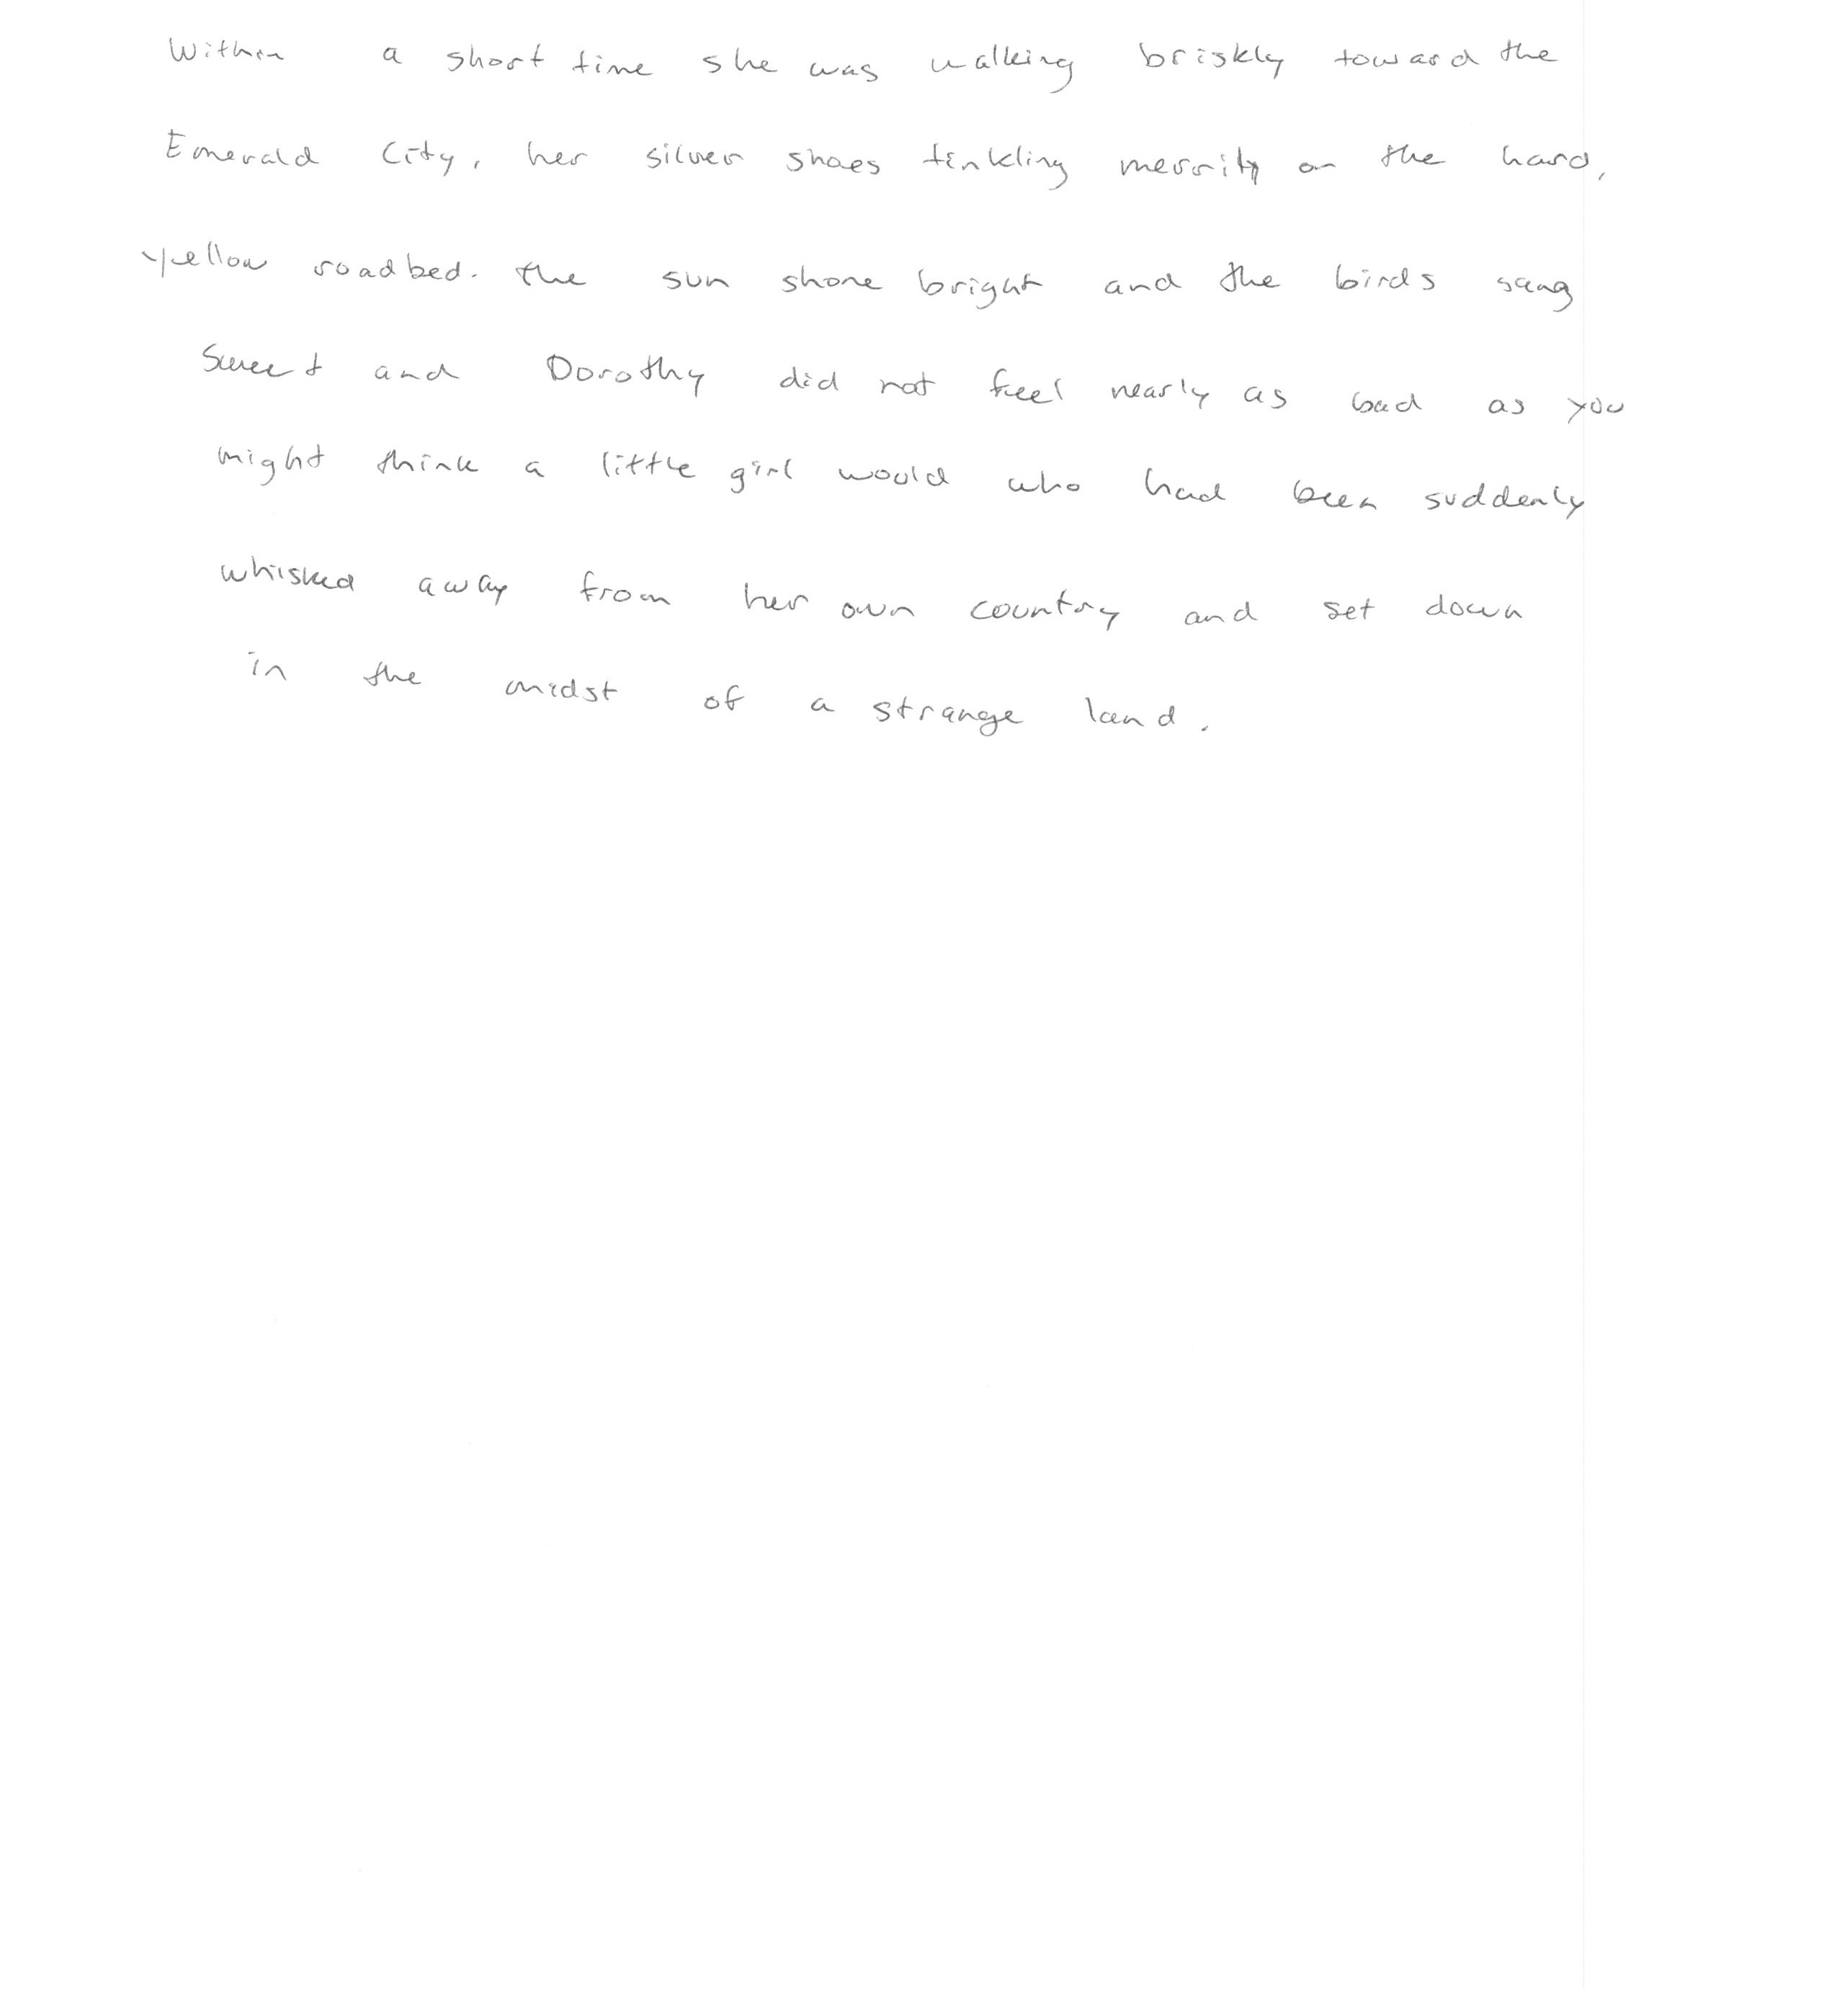 Within a short time she was walking briskly toward the
Emerald City, her silver shoes tinkling merrily on the hard,
yellow roadbed. the sun shone bright and the birds sang
sweet and Dorothy did not feel nearly as bad as you
might think a little girl would who had been suddenly
whisked away from her own country and set down
in the midst of a strange land.